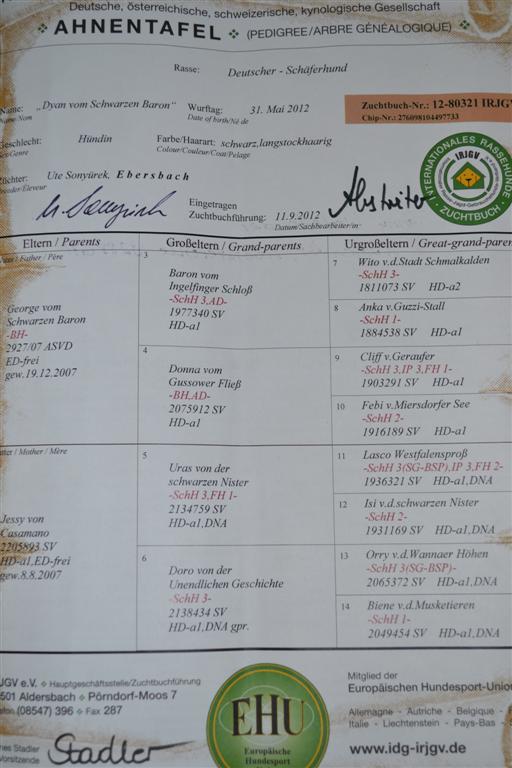 Deutsche, österreichische, schweizerische, kynologische Gesellschaft
AHNENTAFEL (PEDIGREE/ARBRE GÉNÉALOGIQUE)
Rasse: Deutscher - Schäferhund
Name: „Dyan vom Schwarzen Baron“ Wurftag: 31. Mai 2012
Name/Nom Date of birth/Né de
Zuchtbuch-Nr.: 12-80321 IRJGV
Chip-Nr.: 276098104497733
Geschlecht: Hündin Farbe/Haarart: schwarz,langstockhaarig
Sex/Genre Colour/Couleur/Coat/Pelage
Züchter: Ute Sonyürek, Ebersbach
Breeder/Éleveur
Eingetragen
Zuchtbuchführung: 11.9.2012
Datum/Sachbearbeiter/in
INTERNATIONALES RASSEHUNDE
IRJGV
ZUCHTBUCH
Eltern / Parents Großeltern / Grand-parents Urgroßeltern / Great-grand-paren
Father / Père
George vom
Schwarzen Baron
-BH-
2927/07 ASVD
ED-frei
gew.19.12.2007
3
Baron vom
Ingelfinger Schloß
-SchH 3,AD-
1977340 SV
HD-a1
4
Donna vom
Gussower Fließ
-BH,AD-
2075912 SV
HD-a1
7 Wito v.d.Stadt Schmalkalden
-SchH 3-
1811073 SV HD-a2
8 Anka v.Guzzi-Stall
-SchH 1-
1884538 SV HD-a1
9 Cliff v.Geraufer
-SchH 3,IP 3,FH 1-
1903291 SV HD-a1
10 Febi v.Miersdorfer See
-SchH 2-
1916189 SV HD-a1
utter / Mother / Mère
Jessy von
Casamano
2205893 SV
HD-a1,ED-frei
gew.8.8.2007
5
Uras von der
schwarzen Nister
-SchH 3,FH 1-
2134759 SV
HD-a1,DNA
6
Doro von der
Unendlichen Geschichte
-SchH 3-
2138434 SV
HD-a1,DNA gpr.
11 Lasco Westfalensproß
-SchH 3(SG-BSP),IP 3,FH 2-
1936321 SV HD-a1,DNA
12 Isi v.d.schwarzen Nister
-SchH 2-
1931169 SV HD-a1,DNA
13 Orry v.d.Wannaer Höhen
-SchH 3(SG-BSP)-
2065372 SV HD-a1,DNA
14 Biene v.d.Musketieren
-SchH 1-
2049454 SV HD-a1,DNA
JGV e.V. Hauptgeschäftsstelle/Zuchtbuchführung
501 Aldersbach Pörndorf-Moos 7
efon (08547) 396 Fax 287
nes Stadler
Vorsitzende
Stadler
EHU
Europäische
Hundesport
Mitglied der
Europäischen Hundesport-Union
Allemagne - Autriche - Belgique -
Italie - Liechtenstein - Pays-Bas -
www.idg-irjgv.de